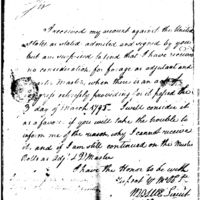 I received my account against the United
States as stated admitted and signed by you
but am surprised to find that I have received
no consideration for forage as adjutant and
Quarter Master, when there is an act
expressly providing for it passed the
3 day of March 1795. I will consider it
as a favor if you will take the trouble to
inform me of the reason why I cannot receive
it, and if I am still continued on the Muster
Rolls as Adj & Q Master
I have the Honor to be with
respect